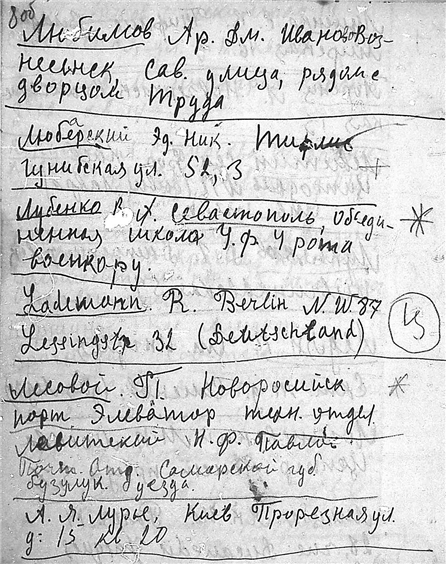 8 об
Любимов Ар. Дм. Иваново Воз-
несенск, Сав. улица, рядом с
дворцом Труда
Любарский Эд. Ник. Тифлис
гунибская ул. 52, 3
Лубенко В. Х. Севастополь, объеди-
ненная школа У.Ф. 4 рота
военкору.
Lademann. R. Berlin N.W. 87
Lessingstr 32 (Deutschland)
Лесовой. П. Новоросийск
порт Элеватор техн. отдел
Левитский Н. Ф.
Почт. Отд. Самарской губ
бузулук. уезда.
А. Я. Лурье, Киев Прорезная ул.
д. 15 кв 20